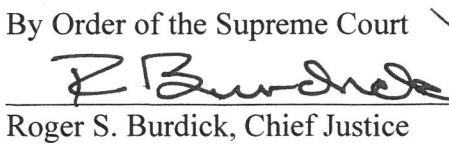 By Order of the Supreme Court
R Burdick
Roger S. Burdick, Chief Justice